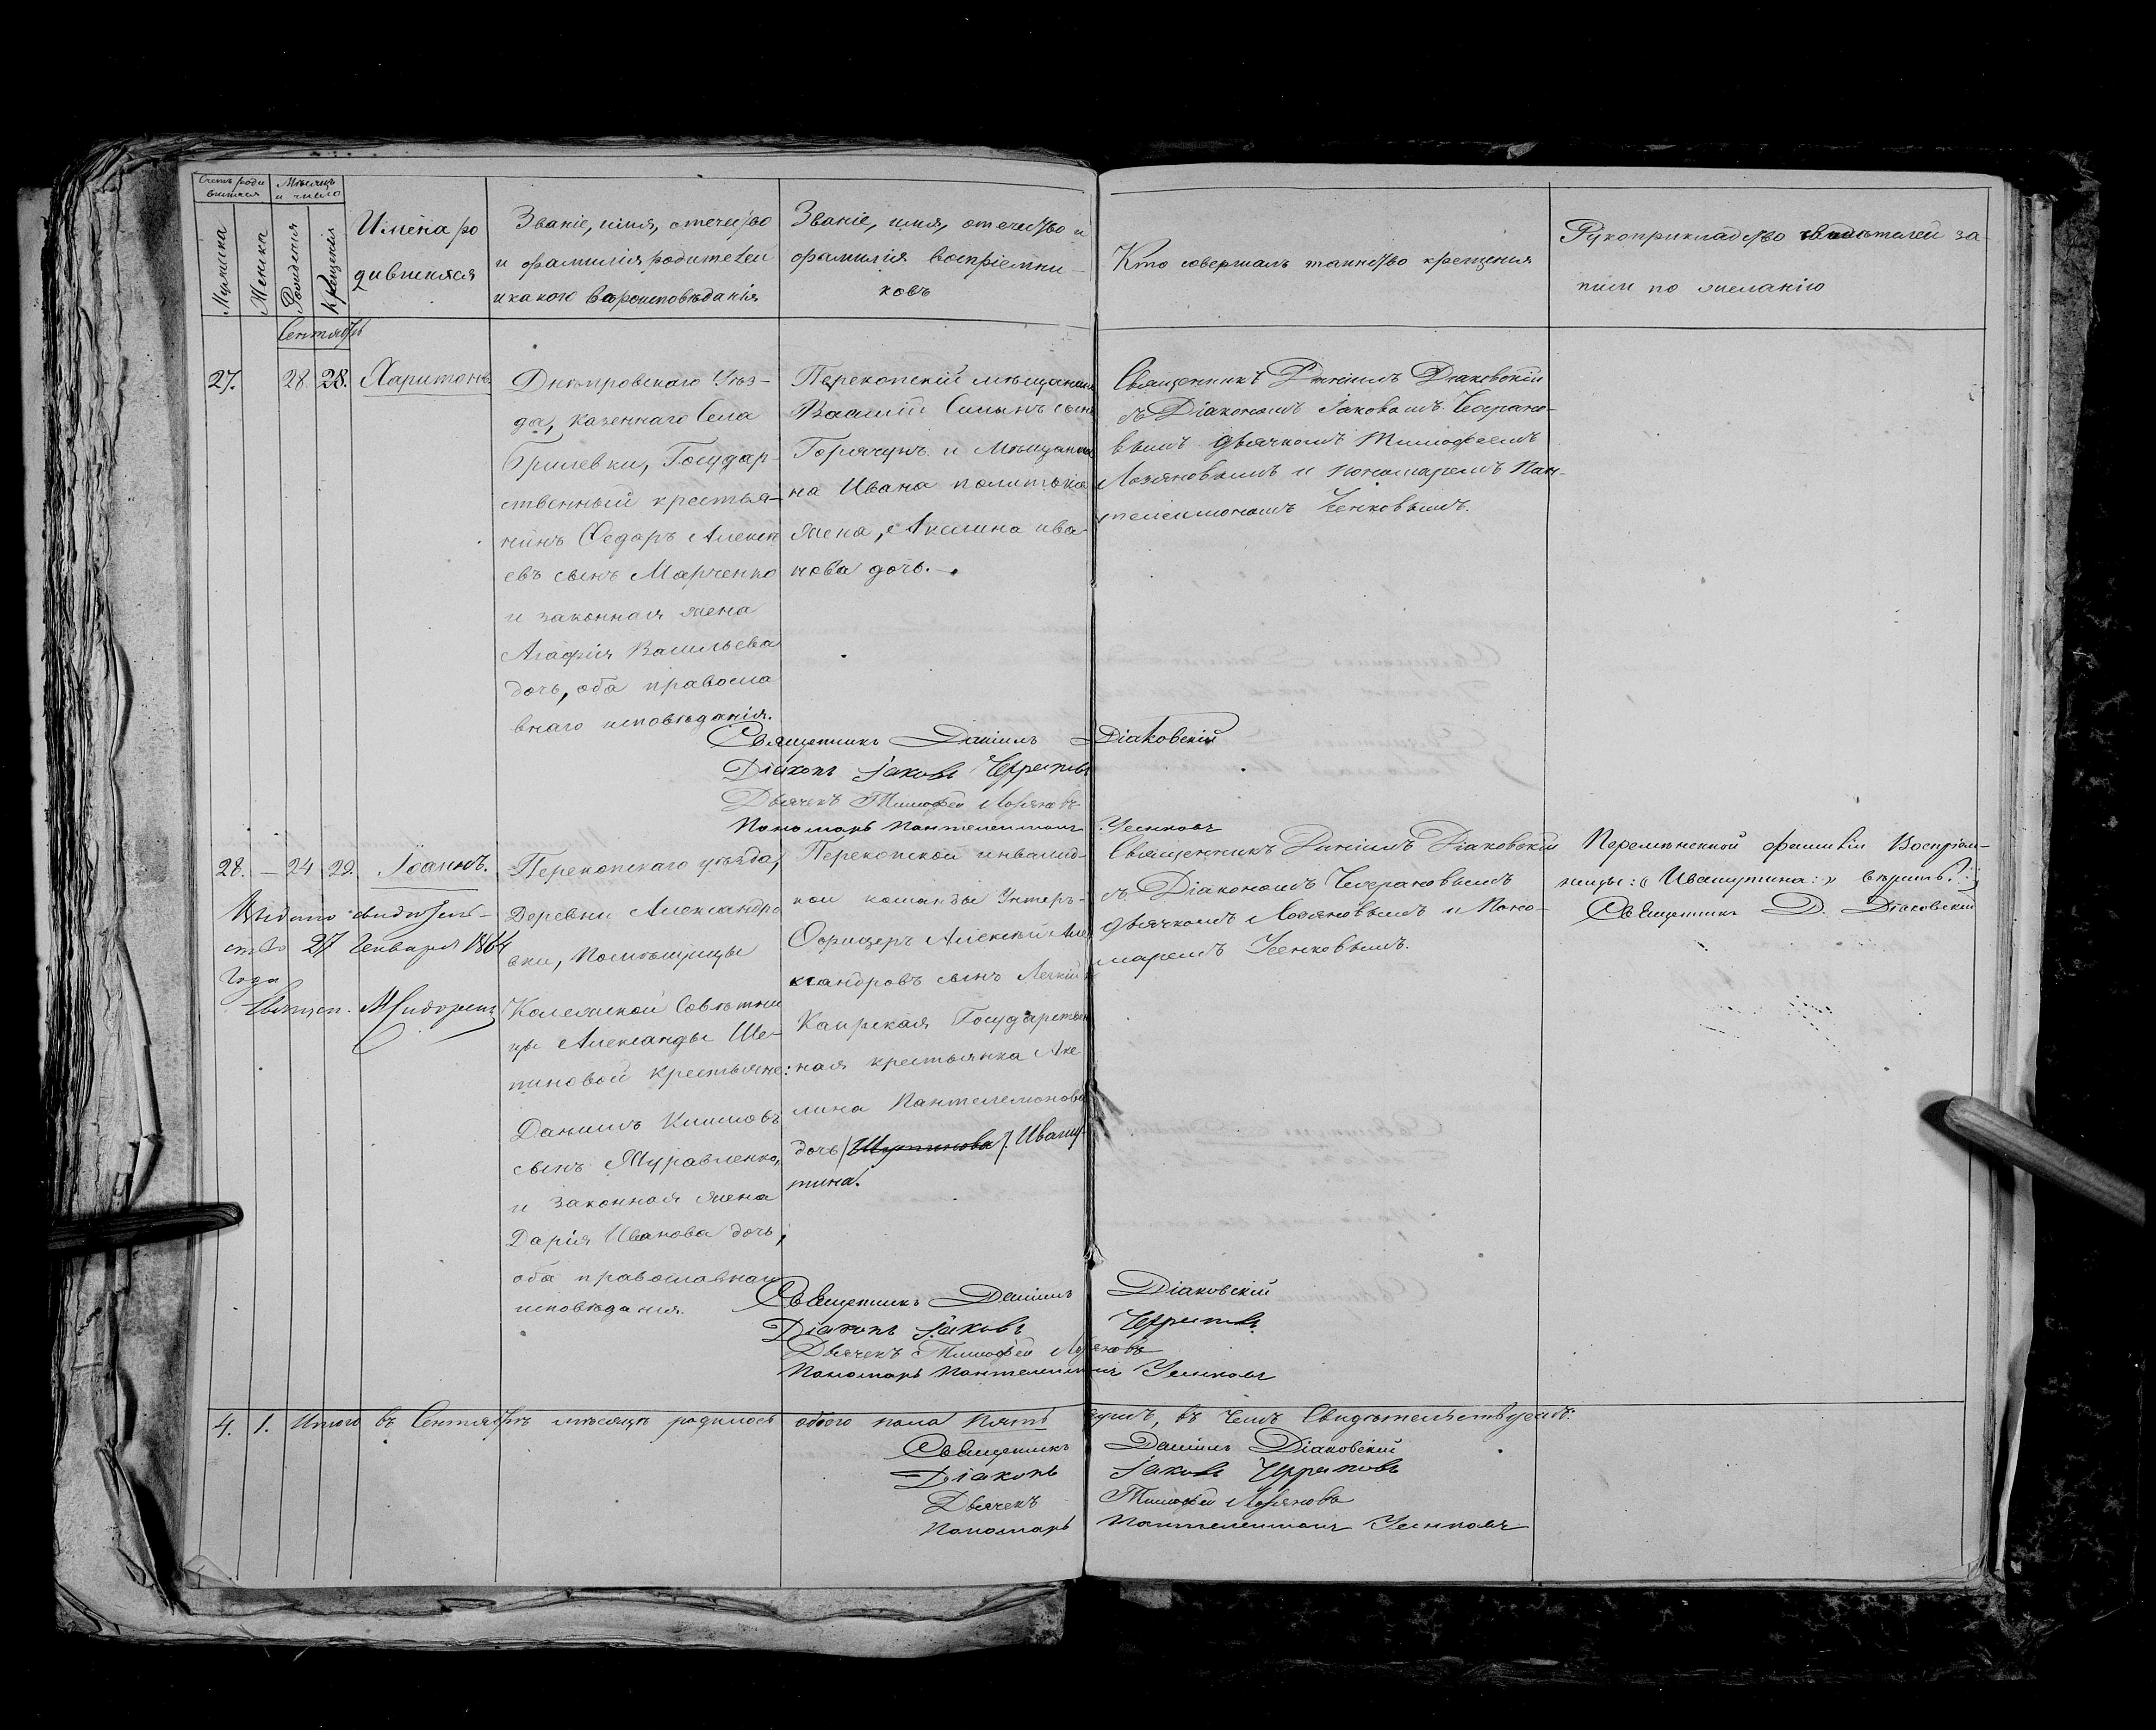 Счетъ роди
вшихся
Мѣсяцъ
и число
Мужеска
Женска
Рожденія
Крещенія
Имена ро
дившихся
Званіе, имя, отечество
и фамилія родителей
и какого вѣроисповѣданія
Званіе, имя, отечество и
фамилія воспріемни-
ковъ
Кто совершалъ таинство крещенія
Рукоприкладство свидѣтелей за-
писи по желанію
Сентябрь
27. 28. 28. Харитонъ.
Днѣпровскаго Уѣз-
да, казеннаго Села
Брилевки, Государ-
ственный крестья-
нинъ Федоръ Алексѣ
евъ сынъ Марченко
и законная жена
Агафія Васильева
дочь, оба правосла
внаго исповѣданія.
Перекопскій мѣщанинъ
Василій сынъ
Горячунъ и Мѣщани
на Ивана
жена, Акилина ива-
нова дочь.
Священникъ Даніилъ Діаковскій
съ Діакономъ Іаковомъ
вымъ дьячкомъ Тимофеемъ
Лозяновымъ и пономаремъ Пан-
телеимономъ Усенковымъ.
Священникъ Даніилъ Діаковскій
Діаконъ Іаковъ
Дьячекъ Тимофей Лозяновъ
Пономарь Пантелеимонъ Усенковъ
28. — 24 29. Іоаннъ.
Выдано свидѣтель-
ство 27 Генваря 1864
года
Священ. М Сидоренко
Перекопскаго уѣзда,
Деревни Александро
вки, Помѣщицы
Колежской Совѣтни
цы Александры Ше-
тиновой крестьяне:
Даніилъ Климовъ
сынъ Муравленко,
и законная жена
Дарія Иванова дочь,
оба православнаго
исповѣданія.
Перекопской инвалид-
ной команды Унтеръ-
Офицеръ Алексѣй Але
ксандровъ сынъ Легкій и
Каирская Государствен
ная крестьянка Аки
лина Пантелемонова
дочь Ивашу-
тина.
Священникъ Даніилъ Діаковскій
съ Діакономъ
дьячкомъ Лозяновымъ и Поно-
маремъ Усенковымъ.
Перемѣненной фамиліи Воспріем-
ницы: „Ивашутина:" вѣрить.
Священникъ Д. Діаковскій
Священникъ Даніилъ Діаковскій
Діаконъ Іаковъ
Дьячекъ Тимофей Лозяновъ
Пономарь Пантелеимонъ Усенковъ
4. 1. Итого въ Сентябрѣ мѣсяцѣ родилось обоего пола пять душъ, въ чемъ Свидѣтельствуемъ:
Священникъ Даніилъ Діаковскій
Діаконъ Іаковъ
Дьячекъ Тимофей Лозяновъ
Пономарь Пантелеимонъ Усенковъ